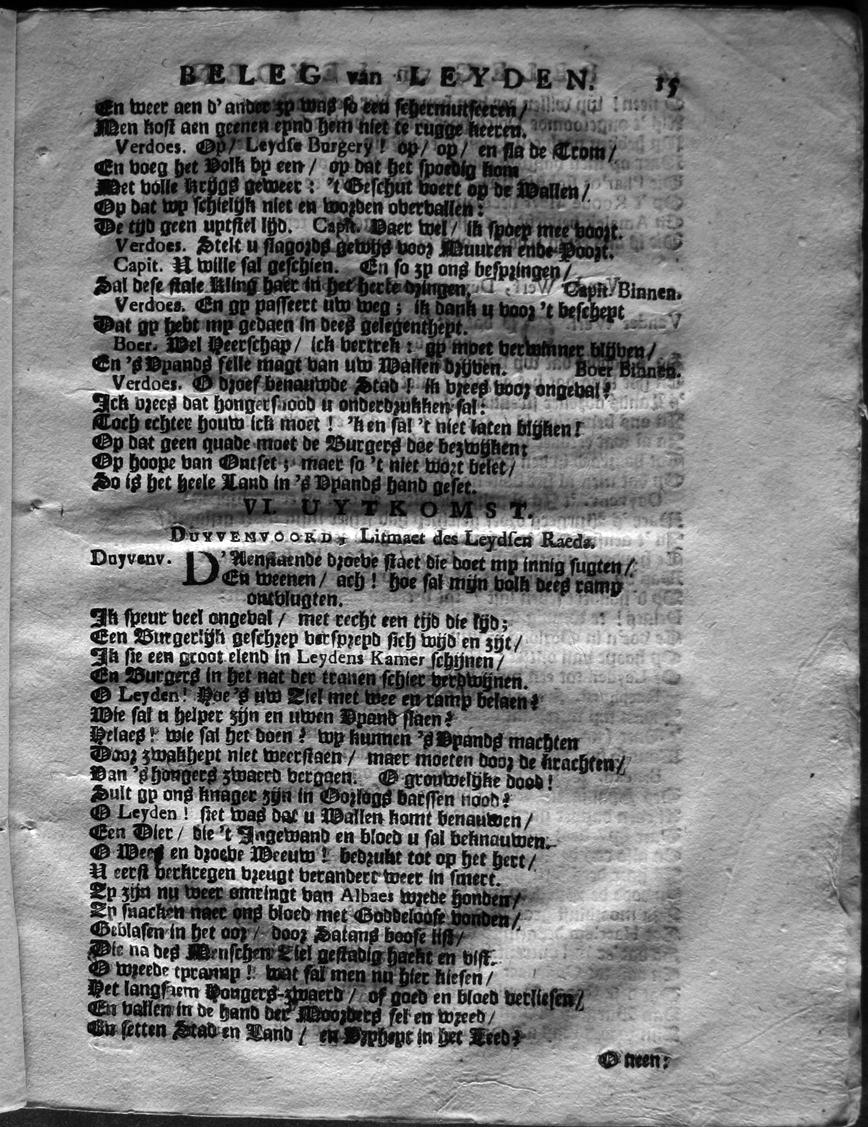 BELEG van LEYDEN. 15
En weer aen d'ander zy was so een schermutseeren/
Men kost aen geenen eynd hem niet te rugge keeren.
Verdoes. Op/ Leydse Burgery! op/ op/ en sla de Trom/
En voeg het Volk by een/ op dat het spoedig kom
Met volle krygs geweer: 't Geschut voert op de Wallen/
Op dat wy schielijk niet en worden overvallen:
De tijd geen uytstel lijd. Capit. Vaer wel/ ik spoey mee voort.
Verdoes. Stelt u slagords gewijs voor Muuren ende Poort.
Capit. U wille sal geschien. En so zy ons bespringen/
Sal dese stale kling haer in het herte dringen. Capit. Binnen.
Verdoes. En gy passeert uw weg; ik dank u voor 't bescheyt
Dat gy hebt my gedaen in dees gelegentheyt.
Boer. Wel Heerschap/ ick vertrek: gy moet verwinner blijven/
En 's Vyands felle magt van uw Wallen drijven. Boer Binnen.
Verdoes. O droef benauwde Stad! ik vrees voor ongeval!
Ick vrees dat hongersnood u onderdrukken sal:
Toch echter houw ick moet! 'k en sal 't niet laten blijken!
Op dat geen quade moet de Burgers doe bezwijken;
Op hoope van Ontset; maer so 't niet wort belet/
So is het heele Land in 's Vyands hand geset.
VI. UYTKOMST.
DUYVENVOORD, Litmaet des Leydsen Raeds.
Duyvenv. D'Aenstaende droeve staet die doet my innig sugten/
En weenen/ ach! hoe sal mijn volk dees ramp
ontvlugten.
Ik speur veel ongeval/ met recht een tijd die lijd;
Een Burgerlijk geschrey verspreyd sich wijd en zijt/
Ik sie een groot elend in Leydens Kamer schijnen/
En Burgers in het nat der tranen schier verdwijnen.
O Leyden! Hoe's uw Ziel met wee en ramp belaen?
Wie sal u helper zijn en uwen Vyand slaen?
Helaes! wie sal het doen? wy kunnen 's Vyands machten
Door zwakheyt niet weerstaen/ maer moeten door de krachten/
Van 's hongers zwaerd vergaen. O grouwelijke dood!
Sult gy ons knager zijn in Oorlogs barssen nood?
O Leyden! siet was dat u Wallen komt benauwen/
Een Dier/ die 't Ingewand en bloed u sal beknauwen.
O Wees en droeve Weeuw! bedrukt tot op het hert/
U eerst verkregen vreugt verandert weer in smert.
Zy zijn nu weer omringt van Albaes wrede honden/
Zy snacken naer ons bloed met Goddeloose vonden/
Geblasen in het oor/ door Satans boose list/
Die na des Menschen Ziel gestadig haekt en vist.
O wreede tyranny! wat sal men nu hier kiesen/
Het langsaem Hongers-zwaerd/ of goed en bloed verliesen/
En vallen in de hand der Moorders fel en wreed/
En setten Stad en Land/ en Vryheyt in het Leed?
O neen: